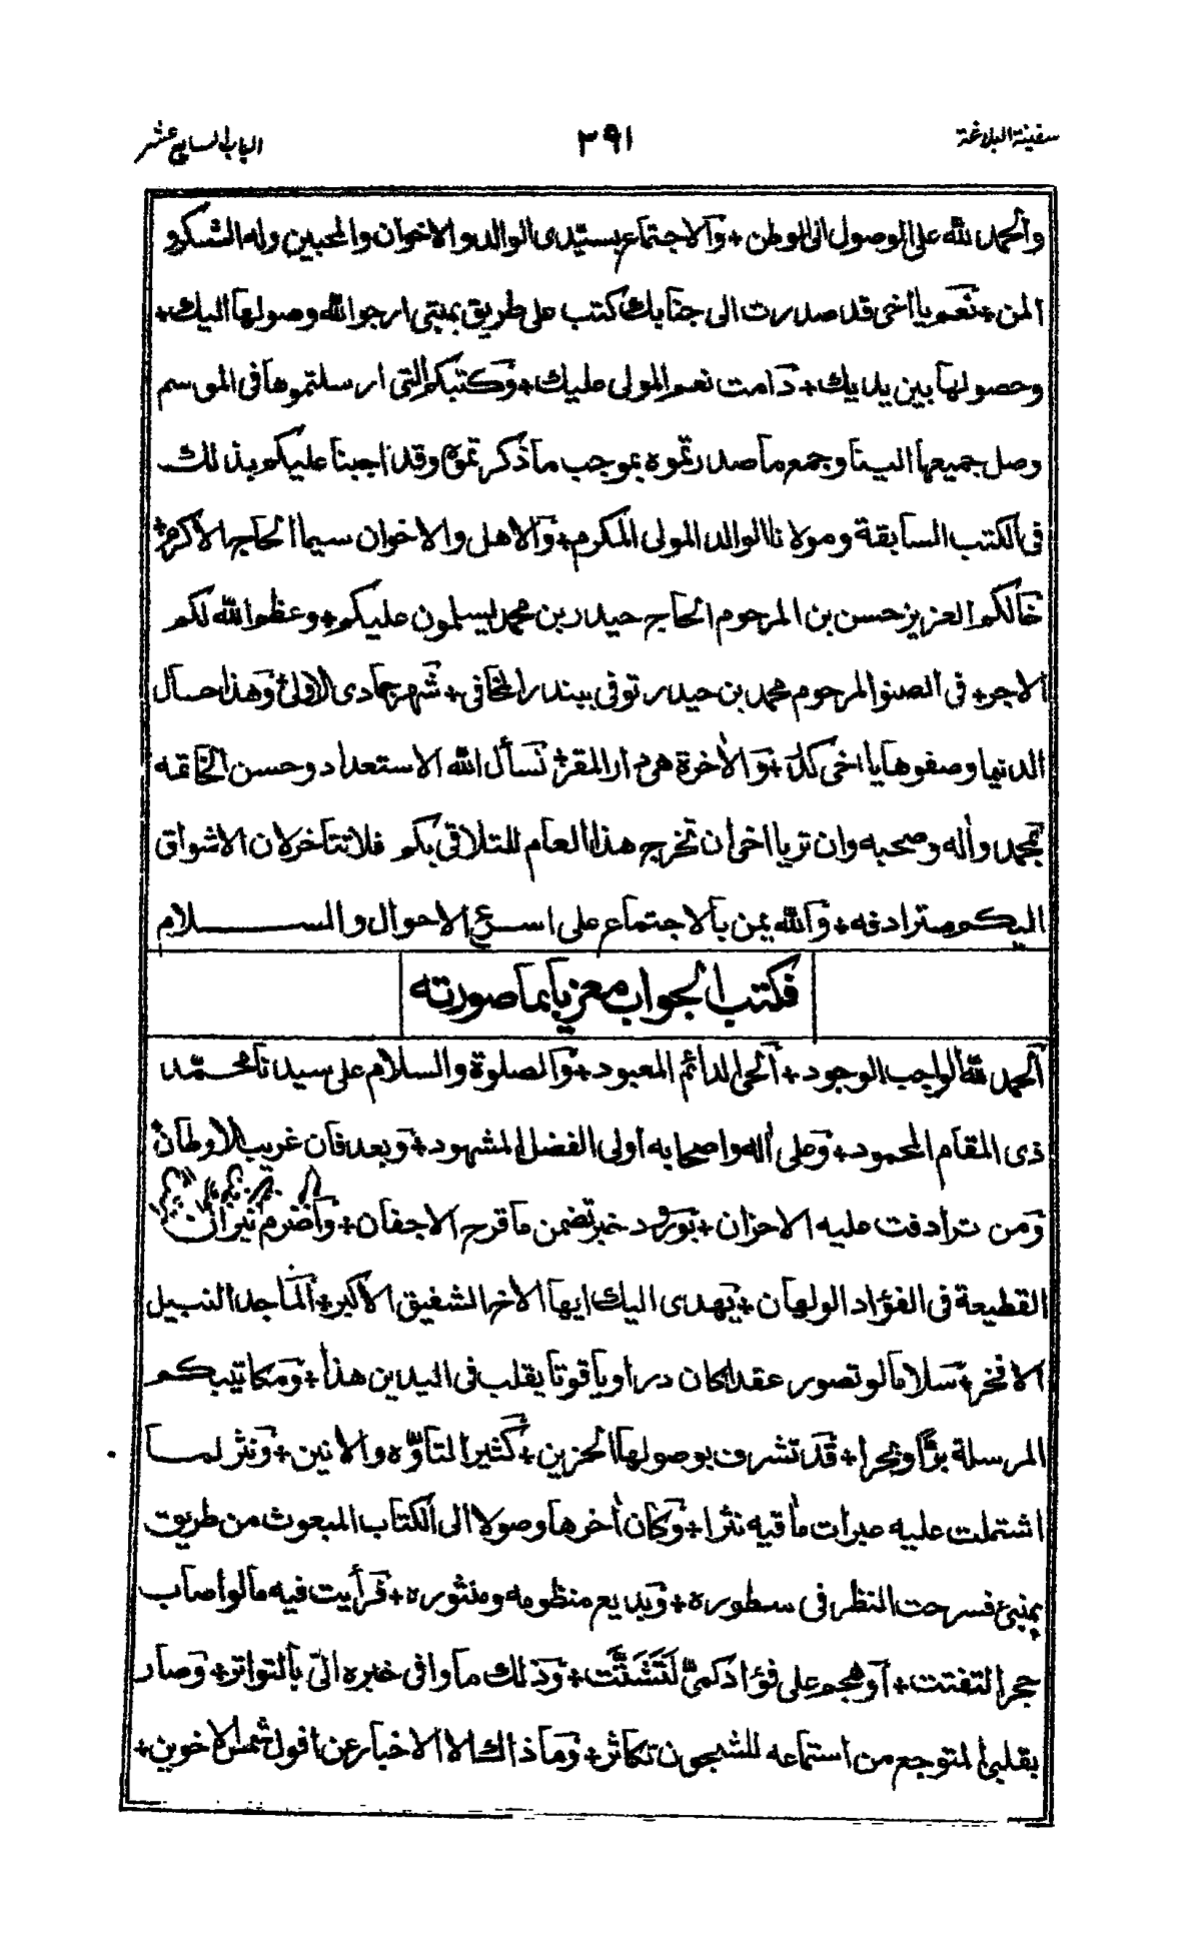 سفينة البلاغة
٣٩١
الباب السابع عشر
والحمد لله على الوصول الى الوطن + والاجتماع بسيدى الوالد والاخوان والمحبين وله الشكر و
المن + نعم يا اخى قد صدرت الى جنابك كتب على طريق بمنبى ارجو الله وصولها اليك +
وحصولها بين يديك + دامت نعم المولى عليك + وكتبكم التى ارسلتموها فى الموسم
وصل جميعها الينا وجمع ما صدرتموه بموجب ما ذكرتموه وقد اجبنا عليكم بذلك
فى الكتب السابقة ومولانا الوالد المولى المكرم + والاهل والاخوان سيما الحاج الاكرم +
خالكم العزيز حسن بن المرحوم الحاج حيدر بن محمد يسلمون عليكم + وعظم الله لكم
الاجر + فى الصنو المرحوم محمد بن حيدر توفى ببندر المخا فى + شهر جمادى الاولى + وهذا حال
الدنيا وصفوها يا اخى كدر + والأخرة هى دار المقر + نسأل الله الاستعداد وحسن الخاتمه
بمحمد وأله وصحبه وان تر يا اخى ان تخرج هذا العام للتلاقى بكم فلا تتأخر لان الاشواق
اليكم مترادفه + والله يمن بالاجتماع على اسرع الاحوال والسلام
فكتب الجواب معزيا بما صورته
الحمد لله الواجب الوجود + الحى الدائم المعبود + والصلوة والسلام على سيدنا محمد
ذى المقام المحمود + وعلى أله واصحابه اولى الفضل المشهود + وبعد فان غريب الاوطان
ومن ترادفت عليه الاحزان + بورود خبر تضمن ما قرح الاجفان + واضرم نيران
القطيعة فى الفؤاد الولهان + يهدى اليك ايها الأخ الشفيق الأكبر + الماجد النبيل
الافخر + سلاما لو تصور عقدا كان درا وياقوتا يقلب فى اليدين هذا + ومكاتيبكم
المرسلة برًّا وبحرا + قد تشرف بوصولها الحزين + كثير التاوّه والانين + ونثر لما
اشتملت عليه عبرات مأقيه نثرا + وكان أخرها وصولا الى الكتاب المبعوث من طريق
بمنبى فسرحت النظر فى سطوره + وبديع منظومه ومنثوره + فرأيت فيه ما لو اصاب
حجرا لتفتت + او هجم على فؤاد كمىّ لَتَشَتَّت + وذلك ما وافى خبره الىّ بالتواتر + وصار
بقلبى المتوجع من استماعه للشجون تكاثر + وما ذاك الا الاخبار عن افول شمس الاخوين +